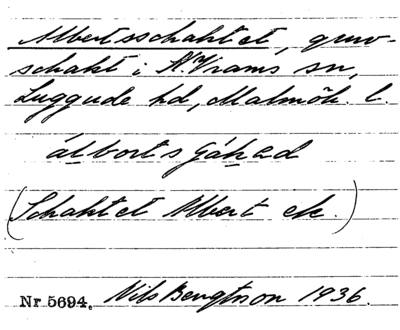 Albertsschaktet, gruv-
schakt i N. Vrams sn,
Luggude hd, Malmöh. l.
álbortsʃáḱəd
(Schaktet Albert etc.)
Nr 5694. Nils Bengtsson 1936.